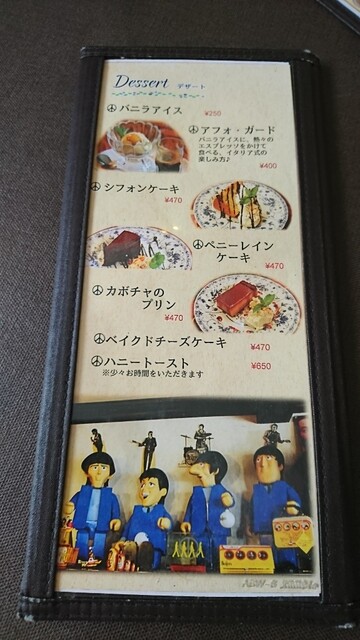 Dessert デザート
バニラアイス ¥250
アフォ・ガード
バニラアイスに、熱々の
エスプレッソをかけて
食べる、イタリア式の
楽しみ方♪
¥400
シフォンケーキ
¥470
ペニーレイン
ケーキ
¥470
カボチャの
プリン
¥470
ベイクドチーズケーキ ¥470
ハニートースト ¥650
※少々お時間をいただきます